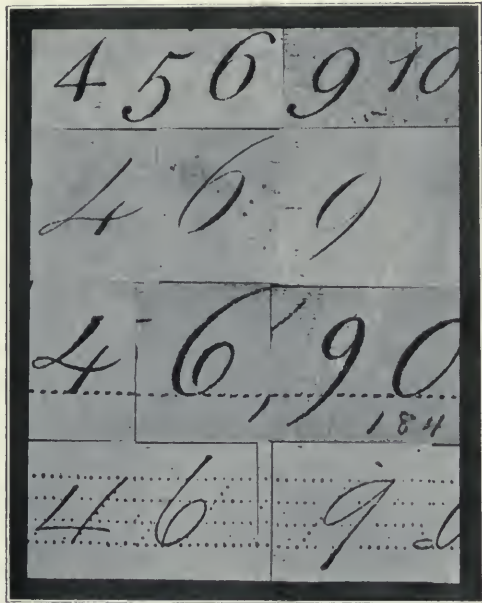 4 5 6 9 10
4 6 9
4 6, 9 0
4 6 9